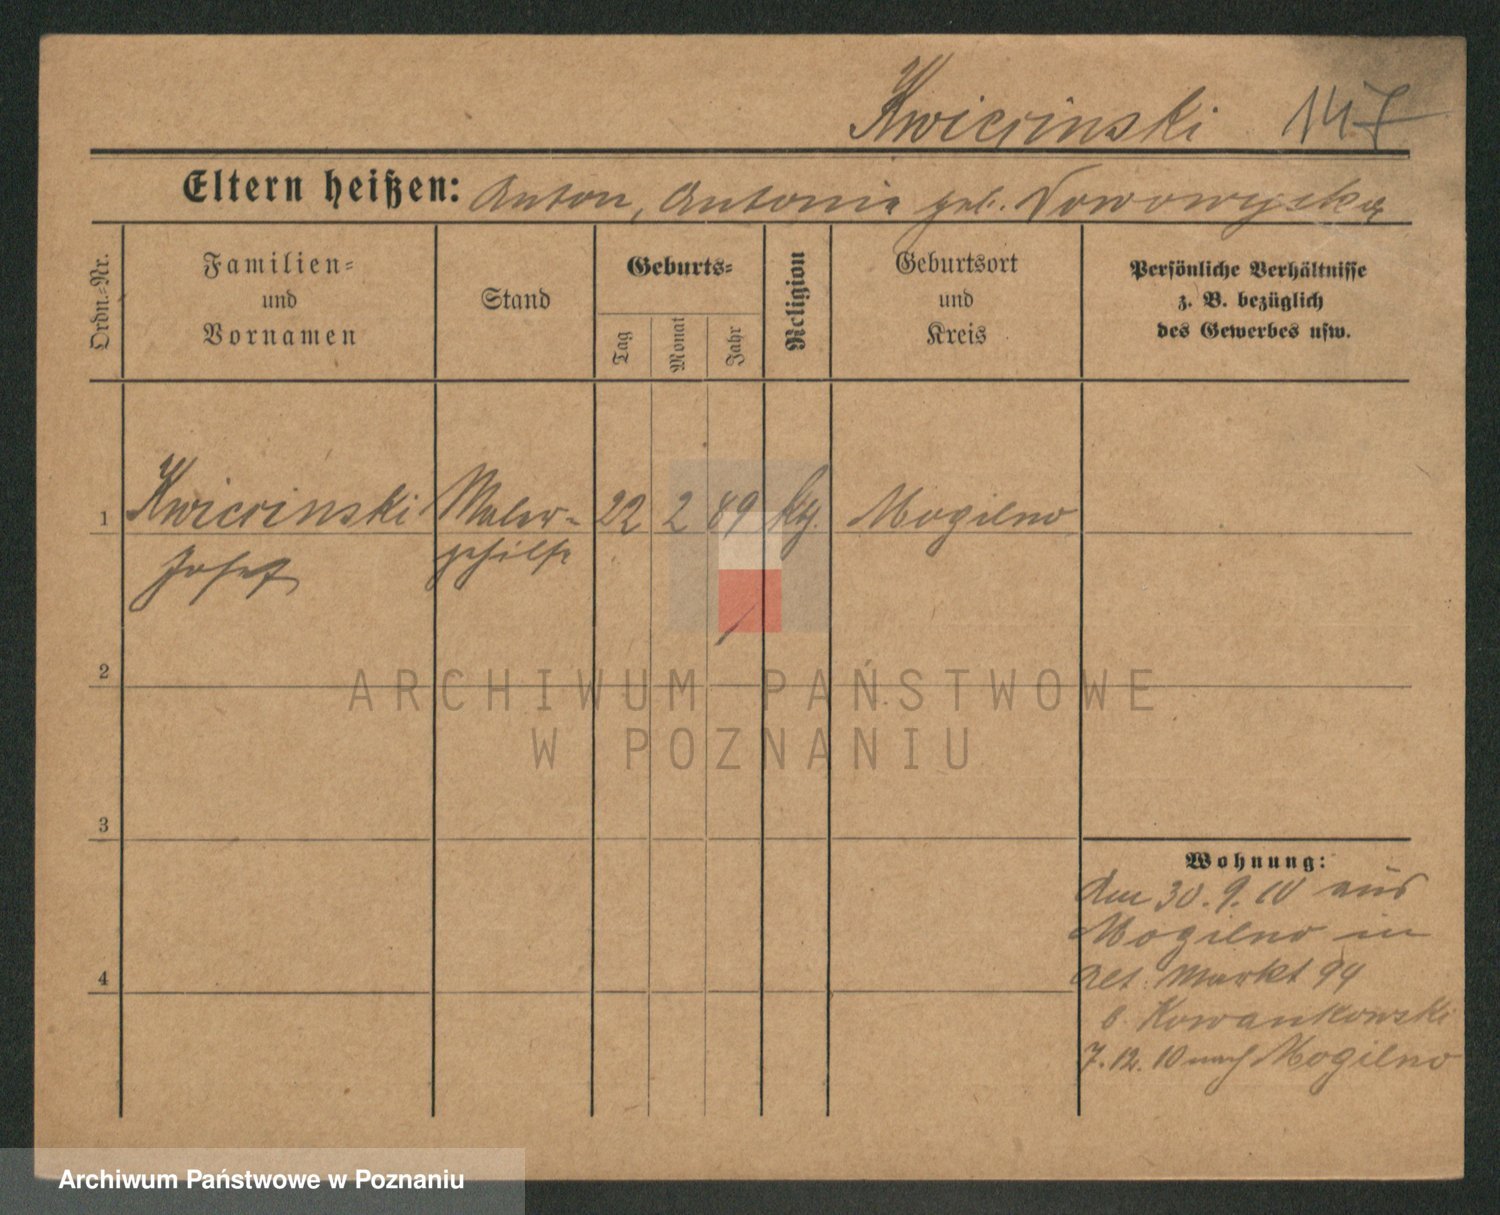 Kwiecinski 147
Eltern heißen: Anton, Antonie geb. Nowowyska
Ordn.-Nr.
Familien-
und
Vornamen
Stand
Geburts-
Tag
Monat
Jahr
Religion
Geburtsort
und
Kreis
Persönliche Verhältnisse
z. B. bezüglich
des Gewerbes usw.
1 Kwiecinski Maler- 22 2 89 kth. Mogilno
Josef gehilfe
2
ARCHIWUM PAŃSTWOWE
W POZNANIU
3
Wohnung:
den 30.9.10 aus
Mogilno in
4
Alt. Markt 94
b. Kowankowski
7.12.10 nach Mogilno
Archiwum Państwowe w Poznaniu